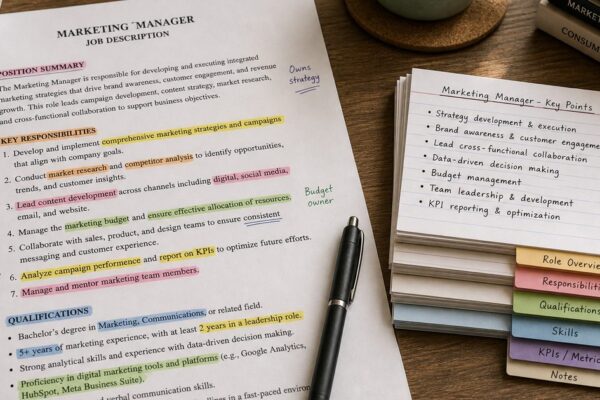 MARKETING MANAGER
JOB DESCRIPTION
POSITION SUMMARY
The Marketing Manager is responsible for developing and executing integrated
marketing strategies that drive brand awareness, customer engagement, and revenue
growth. This role leads campaign development, content strategy, market research,
and cross-functional collaboration to support business objectives.
Owns
strategy
KEY RESPONSIBILITIES
1. Develop and implement comprehensive marketing strategies and campaigns
that align with company goals.
2. Conduct market research and competitor analysis to identify opportunities,
trends, and customer insights.
3. Lead content development across channels including digital, social media,
email, and website.
4. Manage the marketing budget and ensure effective allocation of resources.
Budget
owner
5. Collaborate with sales, product, and design teams to ensure consistent
messaging and customer experience.
6. Analyze campaign performance and report on KPIs to optimize future efforts.
7. Manage and mentor marketing team members.
QUALIFICATIONS
• Bachelor's degree in Marketing, Communications, or related field.
• 5+ years of marketing experience, with at least 2 years in a leadership role.
• Strong analytical skills and experience with data-driven decision making.
• Proficiency in digital marketing tools and platforms (e.g., Google Analytics,
HubSpot, Meta Business Suite).
verbal communication skills.
in a fast-paced
Marketing Manager - Key Points
• Strategy development & execution
• Brand awareness & customer engageme
• Lead cross-functional collaboration
• Data-driven decision making
• Budget management
• Team leadership & development
• KPI reporting & optimization
Role Overvie
Responsibiliti
Qualifications
Skills
KPIs / Metric
Notes
MARKET
CONSUM